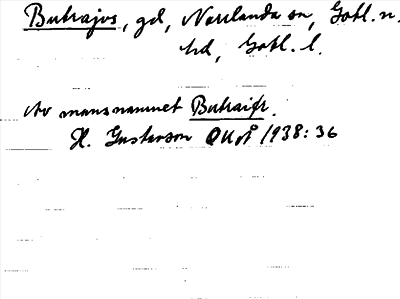 Butrajvs, gd, Norrlanda sn, Gotl. n.
hd, Gotl. l.
Av mansnamnet Butraifr.
H. Gustavson OUÅ 1938:36